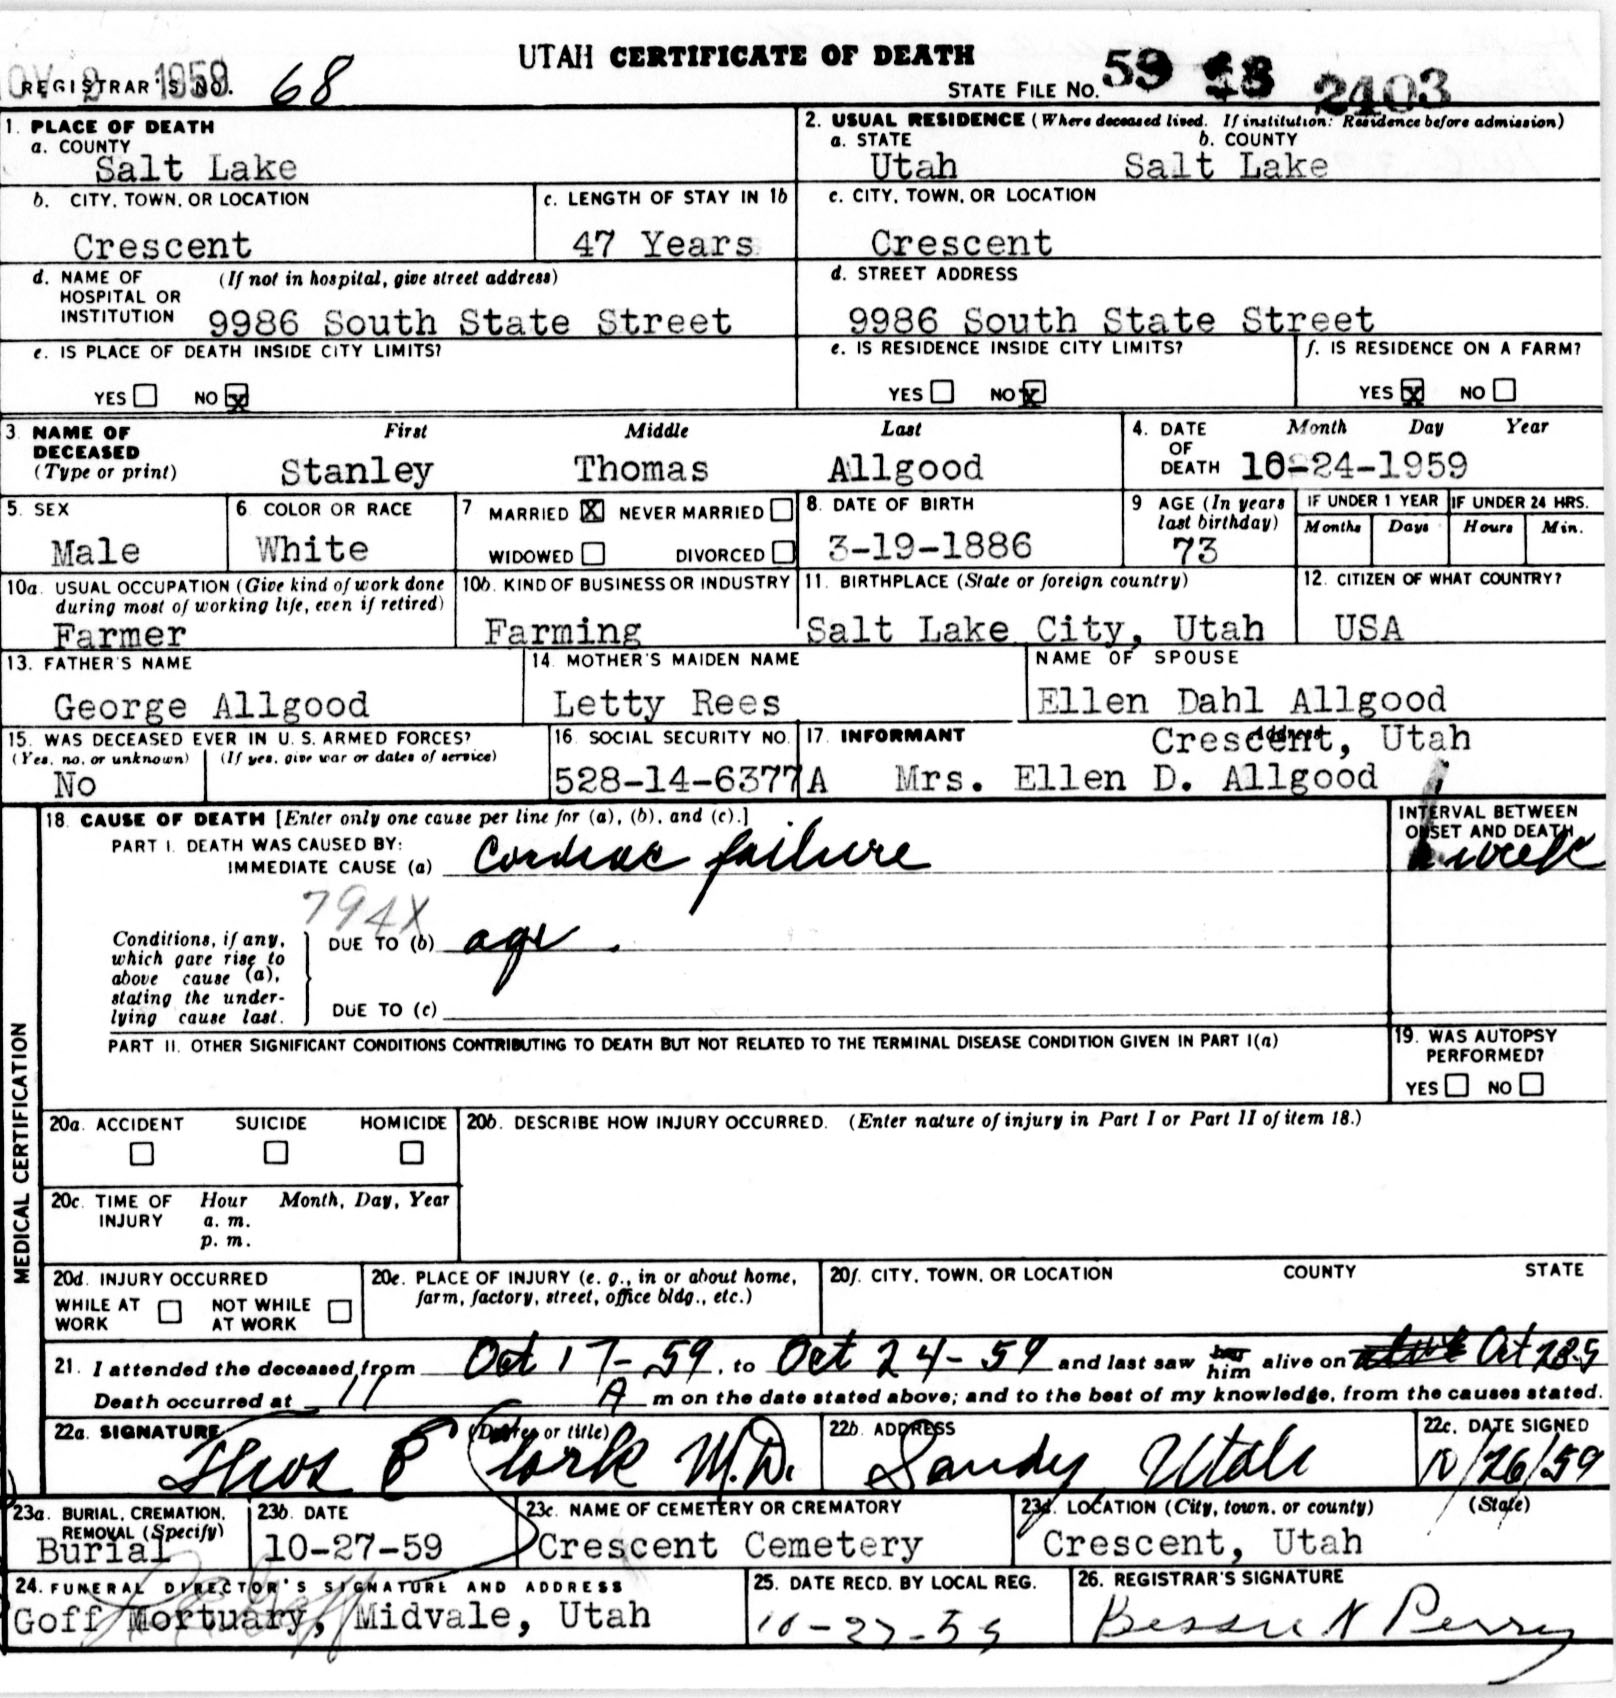 UTAH CERTIFICATE OF DEATH
REGISTRAR'S NO. 68
STATE FILE NO. 59 18 2403
1. PLACE OF DEATH
a. COUNTY
Salt Lake
2. USUAL RESIDENCE (Where deceased lived. If institution: Residence before admission)
a. STATE b. COUNTY
Utah Salt Lake
b. CITY, TOWN, OR LOCATION
Crescent
c. LENGTH OF STAY IN 1b
47 Years
c. CITY, TOWN, OR LOCATION
Crescent
d. NAME OF HOSPITAL OR INSTITUTION (If not in hospital, give street address)
9986 South State Street
d. STREET ADDRESS
9986 South State Street
e. IS PLACE OF DEATH INSIDE CITY LIMITS?
YES NO X
e. IS RESIDENCE INSIDE CITY LIMITS?
YES NO X
f. IS RESIDENCE ON A FARM?
YES X NO
3. NAME OF DECEASED (Type or print)
First Middle Last
Stanley Thomas Allgood
4. DATE OF DEATH Month Day Year
10-24-1959
5. SEX
Male
6. COLOR OR RACE
White
7. MARRIED X NEVER MARRIED
WIDOWED DIVORCED
8. DATE OF BIRTH
3-19-1886
9. AGE (In years last birthday)
73
IF UNDER 1 YEAR IF UNDER 24 HRS.
Months Days Hours Min.
10a. USUAL OCCUPATION (Give kind of work done during most of working life, even if retired)
Farmer
10b. KIND OF BUSINESS OR INDUSTRY
Farming
11. BIRTHPLACE (State or foreign country)
Salt Lake City, Utah
12. CITIZEN OF WHAT COUNTRY?
USA
13. FATHER'S NAME
George Allgood
14. MOTHER'S MAIDEN NAME
Letty Rees
NAME OF SPOUSE
Ellen Dahl Allgood
15. WAS DECEASED EVER IN U. S. ARMED FORCES?
(Yes, no, or unknown) (If yes, give war or dates of service)
No
16. SOCIAL SECURITY NO.
528-14-6377A
17. INFORMANT Address
Crescent, Utah
Mrs. Ellen D. Allgood
MEDICAL CERTIFICATION
18. CAUSE OF DEATH [Enter only one cause per line for (a), (b), and (c).]
PART I. DEATH WAS CAUSED BY:
IMMEDIATE CAUSE (a) Cardiac failure
INTERVAL BETWEEN ONSET AND DEATH
week
794X
Conditions, if any, which gave rise to above cause (a), stating the underlying cause last.
DUE TO (b) age
DUE TO (c)
PART II. OTHER SIGNIFICANT CONDITIONS CONTRIBUTING TO DEATH BUT NOT RELATED TO THE TERMINAL DISEASE CONDITION GIVEN IN PART I(a)
19. WAS AUTOPSY PERFORMED?
YES NO
20a. ACCIDENT SUICIDE HOMICIDE
20b. DESCRIBE HOW INJURY OCCURRED. (Enter nature of injury in Part I or Part II of item 18.)
20c. TIME OF INJURY Hour Month, Day, Year
a. m.
p. m.
20d. INJURY OCCURRED
WHILE AT WORK NOT WHILE AT WORK
20e. PLACE OF INJURY (e. g., in or about home, farm, factory, street, office bldg., etc.)
20f. CITY, TOWN, OR LOCATION COUNTY STATE
21. I attended the deceased from Oct 17-59, to Oct 24-59 and last saw her him alive on Oct
Death occurred at 11 A m on the date stated above; and to the best of my knowledge, from the causes stated.
22a. SIGNATURE (Degree or title)
Thos E Clark M.D.
22b. ADDRESS
Sandy Utah
22c. DATE SIGNED
10/26/59
23a. BURIAL, CREMATION, REMOVAL (Specify)
Burial
23b. DATE
10-27-59
23c. NAME OF CEMETERY OR CREMATORY
Crescent Cemetery
23d. LOCATION (City, town, or county) (State)
Crescent, Utah
24. FUNERAL DIRECTOR'S SIGNATURE AND ADDRESS
Goff Mortuary, Midvale, Utah
25. DATE RECD. BY LOCAL REG.
10-27-59
26. REGISTRAR'S SIGNATURE
Bessie N Perry